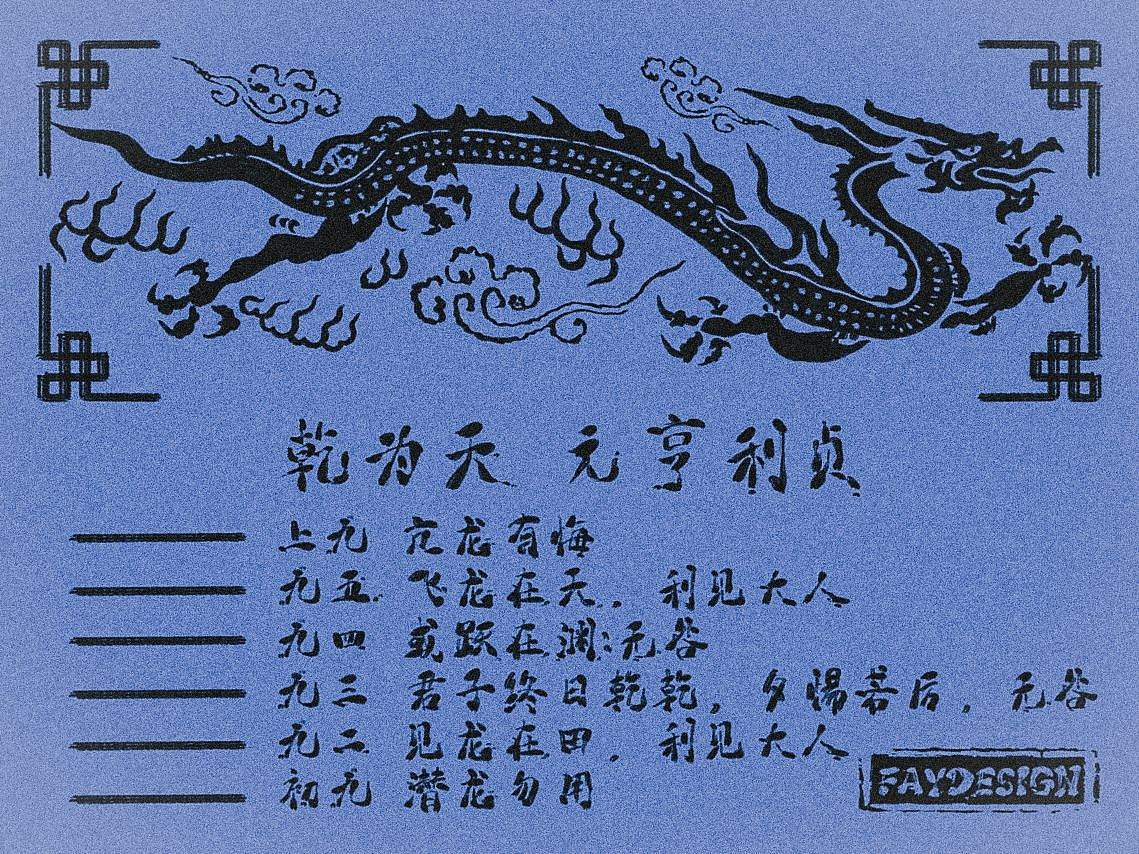 乾为天 元亨利贞
上九 亢龙有悔
九五 飞龙在天，利见大人
九四 或跃在渊:无谷
九三 君子终日乾乾，夕惕若后，无谷
九二 见龙在田，利见大人
初九 潜龙勿用
FAYDESIGN